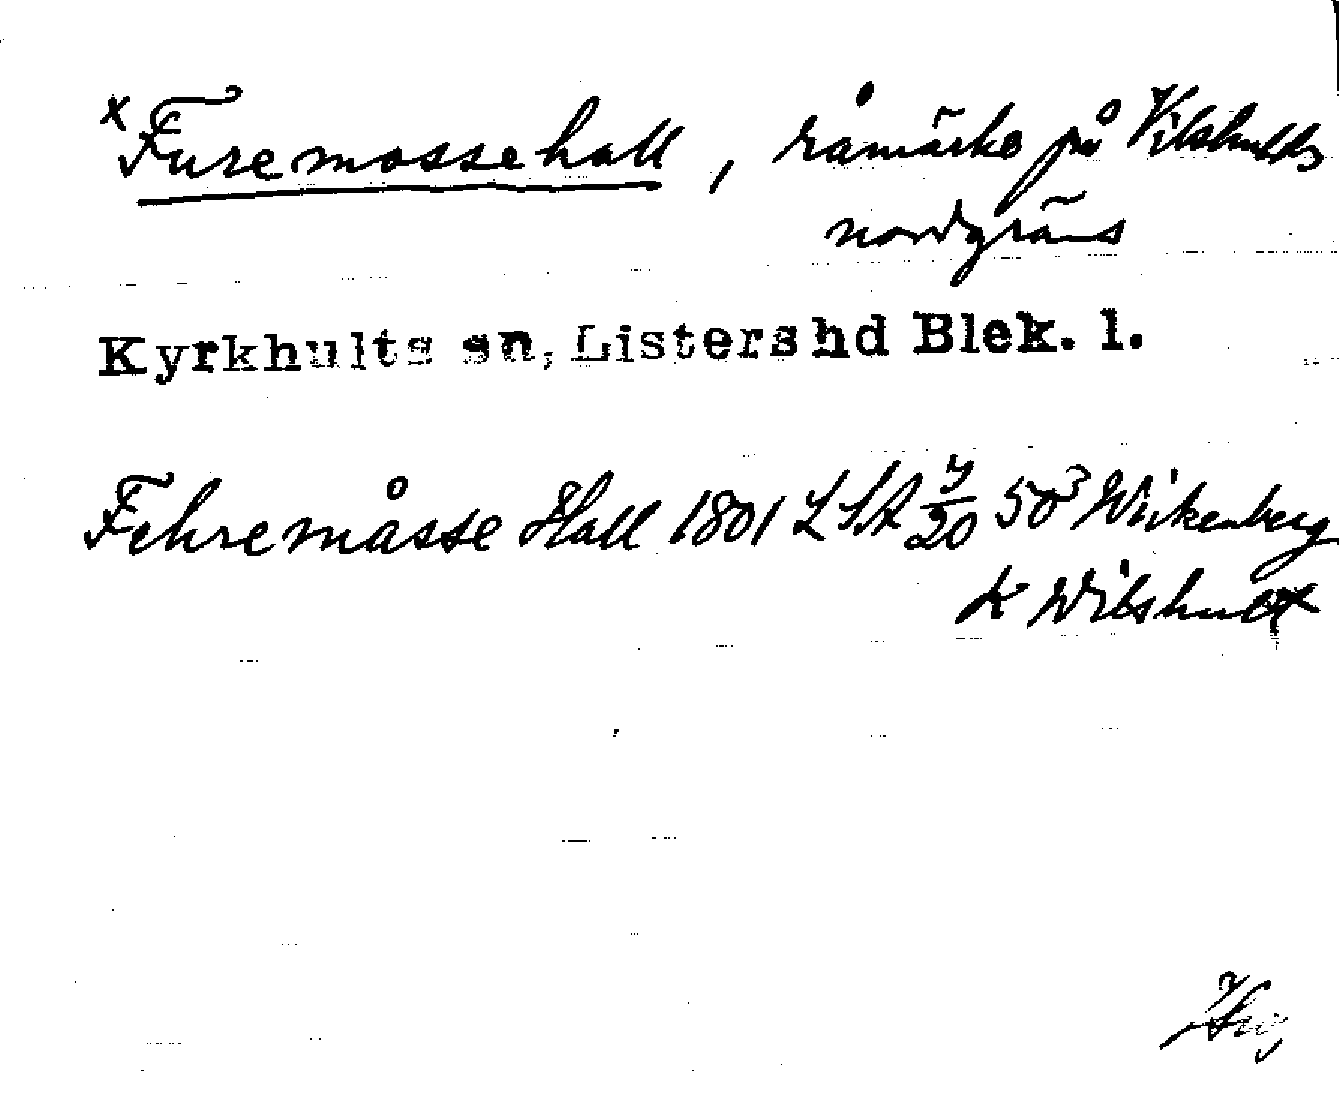 x Furemossehall, råmärke på Vilshults
nordgräns
Kyrkhults sn, Listershd Blek. l.
Fehremåsse Hall 1801 LSA 50³ Wirkenberg
K Wilshult